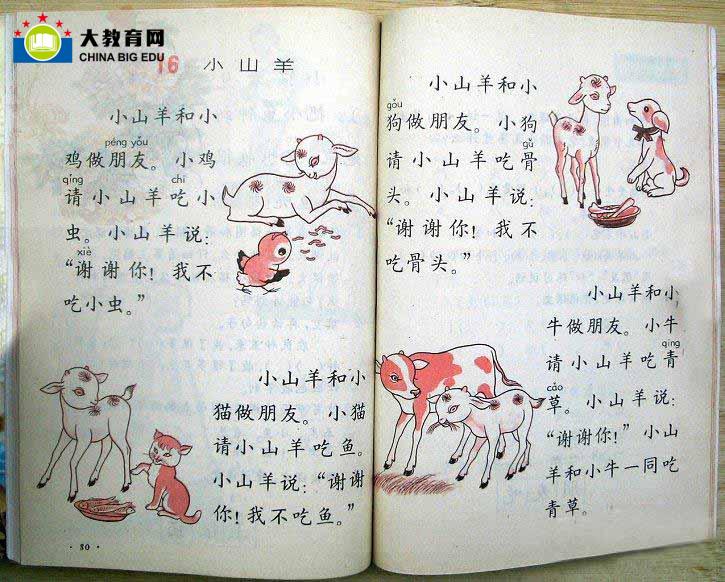 大教育网
CHINA BIG EDU
16 小山羊
小山羊和小
péng yǒu
鸡做朋友。小鸡
qǐng chī
请小山羊吃小
虫。小山羊说：
xiè
“谢谢你！我不
吃小虫。”
小山羊和小
猫做朋友。小猫
请小山羊吃鱼。
小山羊说：“谢谢
你！我不吃鱼。”
·80·
小山羊和小
gǒu
狗做朋友。小狗
gǔ
请小山羊吃骨
头。小山羊说：
“谢谢你！我不
吃骨头。”
小山羊和小
牛做朋友。小牛
qīng
请小山羊吃青
cǎo
草。小山羊说：
“谢谢你！”小山
羊和小牛一同吃
青草。